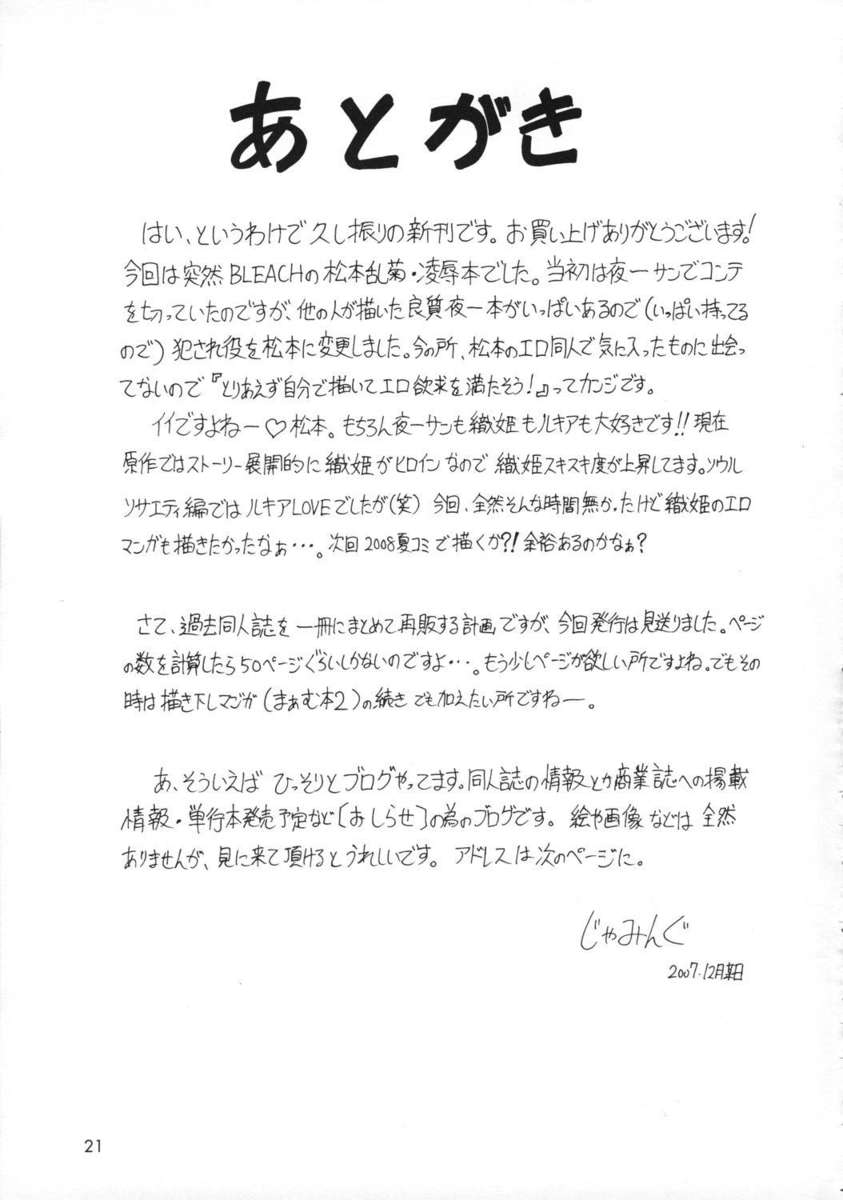 あとがき
はい、というわけで久し振りの新刊です。お買い上げありがとうございます!
今回は突然BLEACHの松本乱菊・凌辱本でした。当初は夜一サンでコンテ
を切っていたのですが、他の人が描いた良質夜一本がいっぱいあるので(いっぱい持ってる
ので)犯され役を松本に変更しました。今の所、松本のエロ同人で気に入ったものに出会っ
てないので『とりあえず自分で描いてエロ欲求を満たそう!』ってカンジです。
イイですよねー♡松本。もちろん夜一サンも織姫もルキアも大好きです!!現在
原作ではストーリー展開的に織姫がヒロインなので織姫スキスキ度が上昇してます。ソウル
ソサエティ編ではルキアLOVEでしたが(笑)今回、全然そんな時間無かったけど織姫のエロ
マンガも描きたかったなぁ・・・。次回2008夏コミで描くか?!余裕あるのかなぁ?
さて、過去同人誌を一冊にまとめて再販する計画ですが、今回発行は見送りました。ページ
の数を計算したら50ページぐらいしかないのですよ・・・。もう少しページが欲しい所ですよね。でもその
時は描き下しマンガ(まぁむ本2)の続きでも加えたい所ですねー。
あ、そういえばひっそりとブログやってます。同人誌の情報とか商業誌への掲載
情報・単行本発売予定など[おしらせ]の為のブログです。絵や画像などは全然
ありませんが、見に来て頂けるとうれしいです。アドレスは次のページに。
じゃみんぐ
2007.12月
21